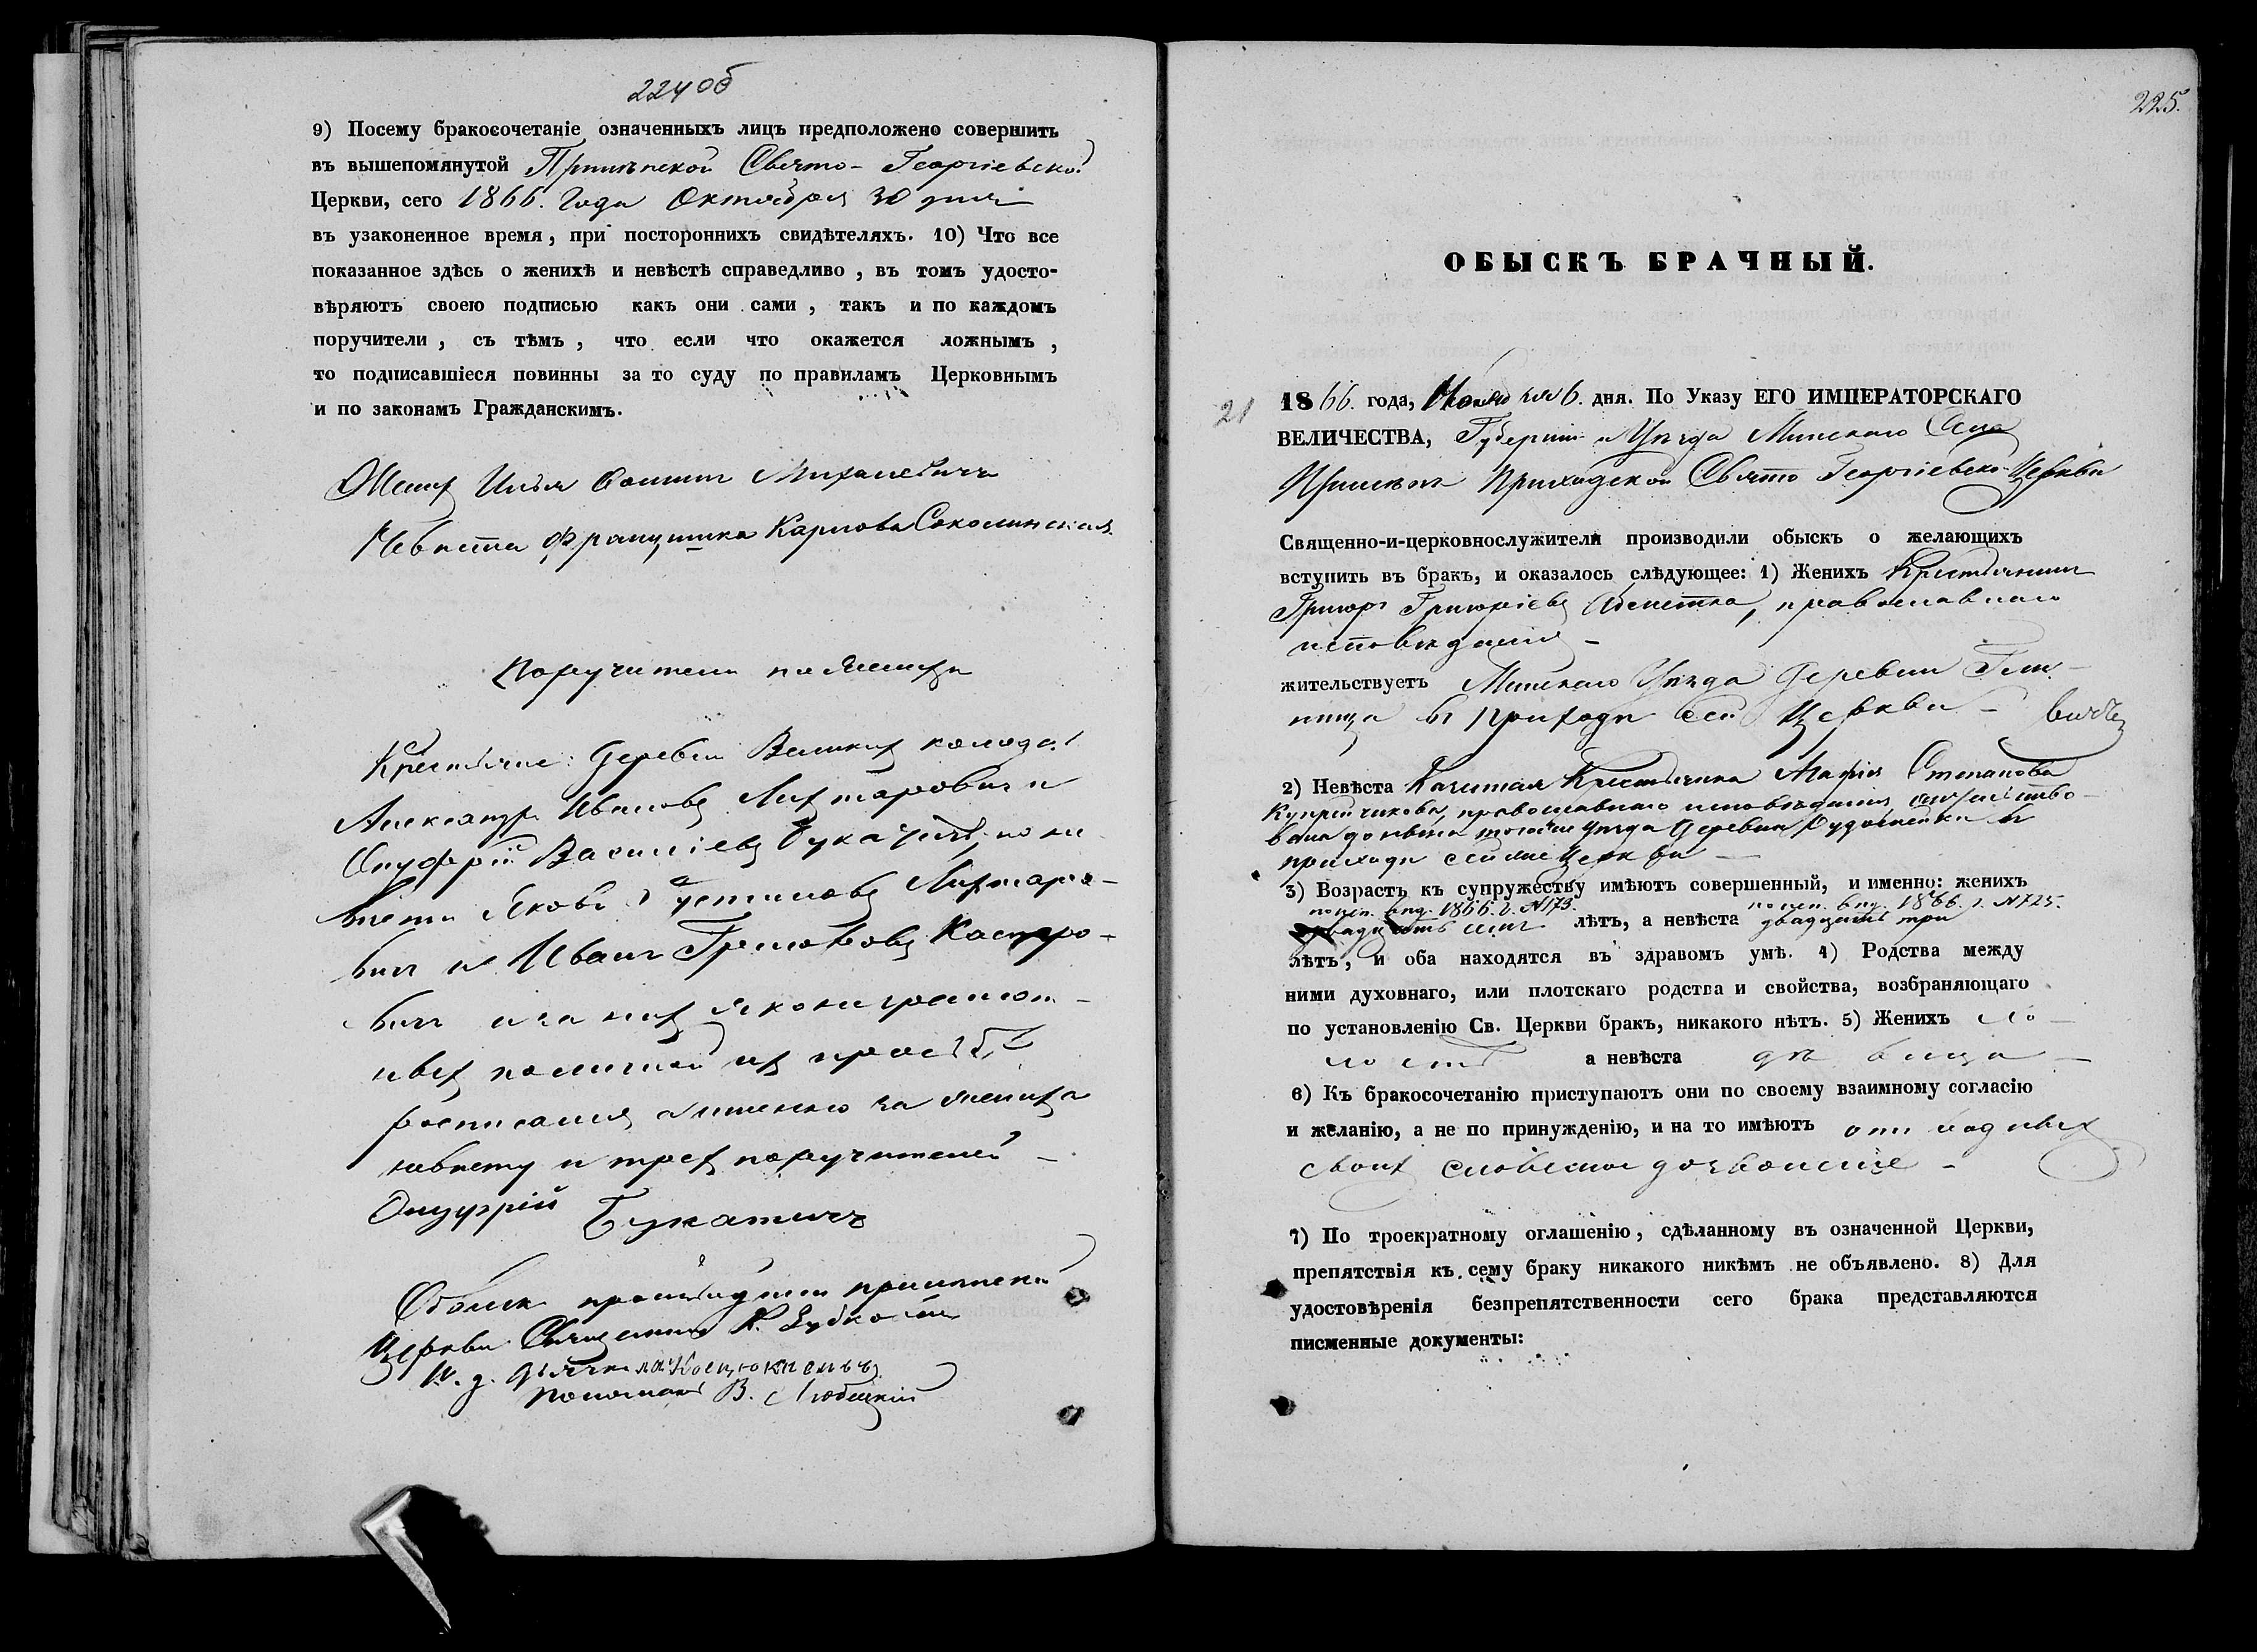 224 об
9) Посему бракосочетаніе означенныхъ лицъ предположено совершить
въ вышепомянутой Прилѣпской Свято-Георгіевской
Церкви, сего 1866. Года Октября 30 дня
въ узаконенное время, при постороннихъ свидѣтеляхъ. 10) Что все
показанное здѣсь о женихѣ и невѣстѣ справедливо, въ томъ удосто-
вѣряютъ своею подписью какъ они сами, такъ и по каждомъ
поручители, съ тѣмъ, что если что окажется ложнымъ,
то подписавшіеся повинны за то суду по правиламъ Церковнымъ
и по законамъ Гражданскимъ.
Женихъ Илья Михалевичъ
Невѣста Францишка Карпова Соколинская.
Поручители по женихѣ
Крестьяне: Деревни Великихъ
Александръ Ивановъ и
Онуфрій Василіевъ Букатичъ, по не-
вѣсти Яковъ Устиновъ
вичъ и Иванъ Каспро-
вичъ а за нихъ яко неграмот-
ныхъ по личной ихъ просьбѣ
росписался и за жениха
невѣсту и трехъ поручителей
Онуфрій Букатичъ
Обыск производили Прилѣпской
Церкви Священникъ К.
И. д. дьячка
Пономарь В. Любецкій
225.
ОБЫСКЪ БРАЧНЫЙ.
21
1866. года, Ноября 6. дня. По Указу ЕГО ИМПЕРАТОРСКАГО
ВЕЛИЧЕСТВА, Губерніи и Уѣзда Минскаго Села
Прилѣпъ Приходской Свято Георгіевской Церкви
Священно-и-церковнослужители производили обыскъ о желающихъ
вступить въ бракъ, и оказалось слѣдующее: 1) Женихъ Крестьянинъ
Григорій Григоріевъ православнаго
исповѣданія -
жительствуетъ Минскаго Уѣзда Деревни
въ приходѣ сей Церкви -
2) Невѣста Крестьянка Степанова
православнаго исповѣданія, жительство-
вала донынѣ того же Уѣзда Деревни въ
приходѣ сей же Церкви
3) Возрастъ къ супружеству имѣютъ совершенный, и именно: женихъ
1866. г. № 173. 1866. г. № 725.
двадцать лѣтъ, а невѣста двадцать три
лѣтъ, и оба находятся въ здравомъ умѣ. 4) Родства между
ними духовнаго, или плотскаго родства и свойства, возбраняющаго
по установленію Св. Церкви бракъ, никакого нѣтъ. 5) Женихъ хо-
лостъ а невѣста дѣвица
6) Къ бракосочетанію приступаютъ они по своему взаимному согласію
и желанію, а не по принужденію, и на то имѣютъ отъ родныхъ
своихъ словесное дозволеніе -
7) По троекратному оглашенію, сдѣланному въ означенной Церкви,
препятствія къ сему браку никакого никѣмъ не объявлено. 8) Для
удостовѣренія безпрепятственности сего брака представляются
писменные документы: